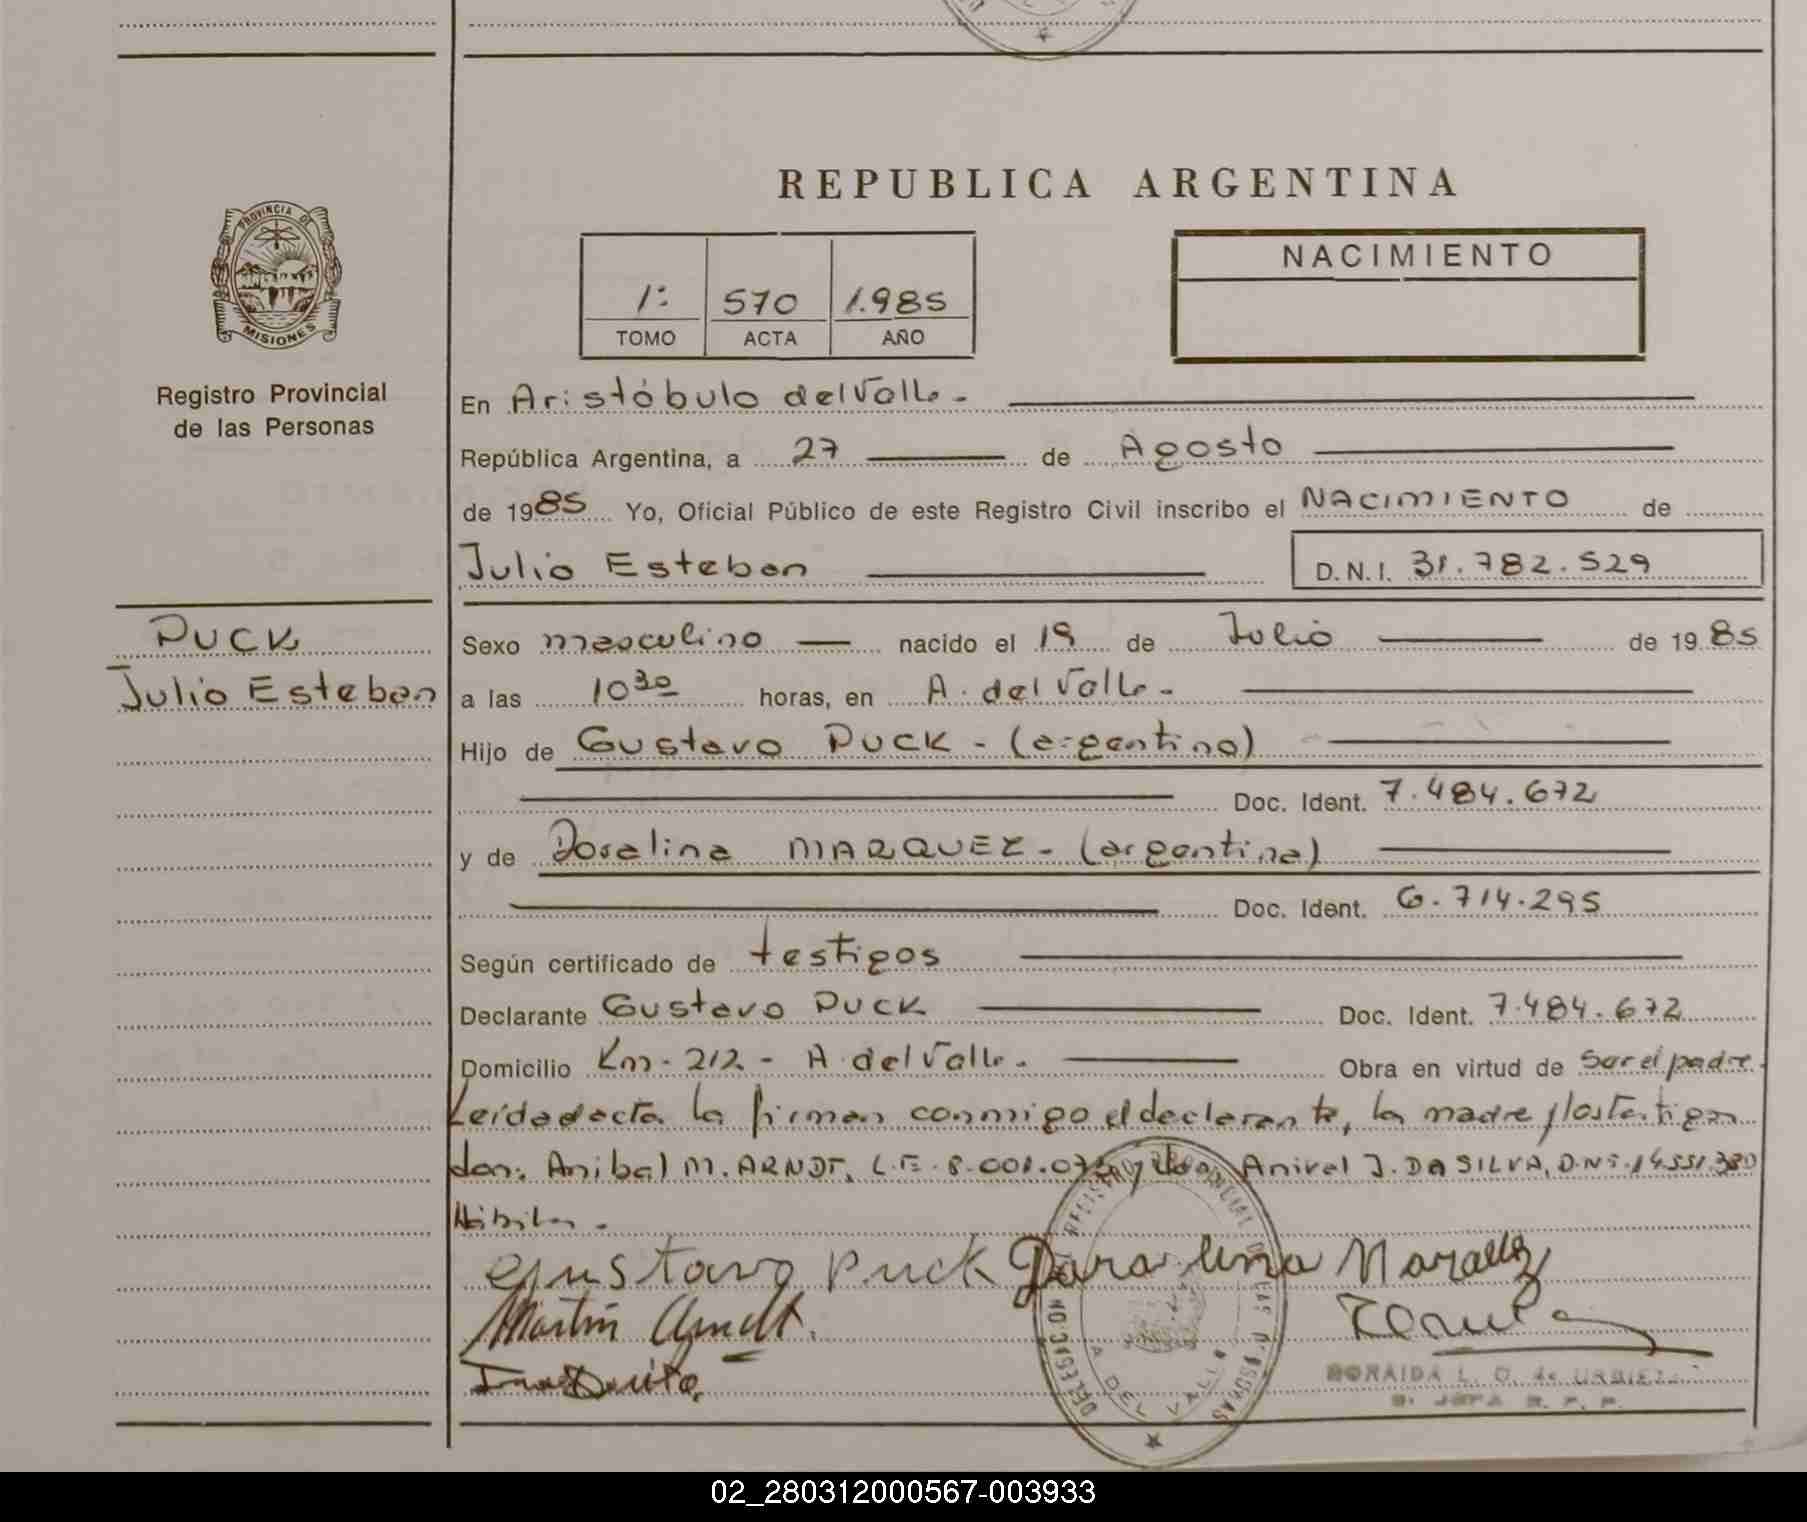 REPUBLICA ARGENTINA
PROVINCIA DE
MISIONES
Registro Provincial
de las Personas
1º 570 1.985
TOMO ACTA AÑO
NACIMIENTO
En Aristóbulo del Valle.-
República Argentina, a 27 de Agosto
de 1985 Yo, Oficial Público de este Registro Civil inscribo el NACIMIENTO de
Julio Esteban D.N.I. 31.782.529
PUCK
Julio Esteban
Sexo masculino nacido el 19 de Julio de 1985
a las 10 30 horas, en A. del Valle.-
Hijo de Gustavo PUCK - (argentino)
Doc. Ident. 7.484.672
y de Doralina MARQUEZ - (argentina)
Doc. Ident. 6.714.295
Según certificado de testigos
Declarante Gustavo PUCK Doc. Ident. 7.484.672
Domicilio Km-212 - A. del Valle.- Obra en virtud de ser el padre.
Leída el acta la firman conmigo el declarante, la madre y los testigos
don: Anibal M. ARNDT, L.E. 8.001.073 y don Anivel J. DA SILVA, D.N.I. 14.551.380
Hábiles.-
Gustavo Puck Doralina Marquez
Martin Arndt.
REGISTRO PROVINCIAL DE LAS PERSONAS
DELEGACION
A. DEL VALLE
L. O. de
02_280312000567-003933